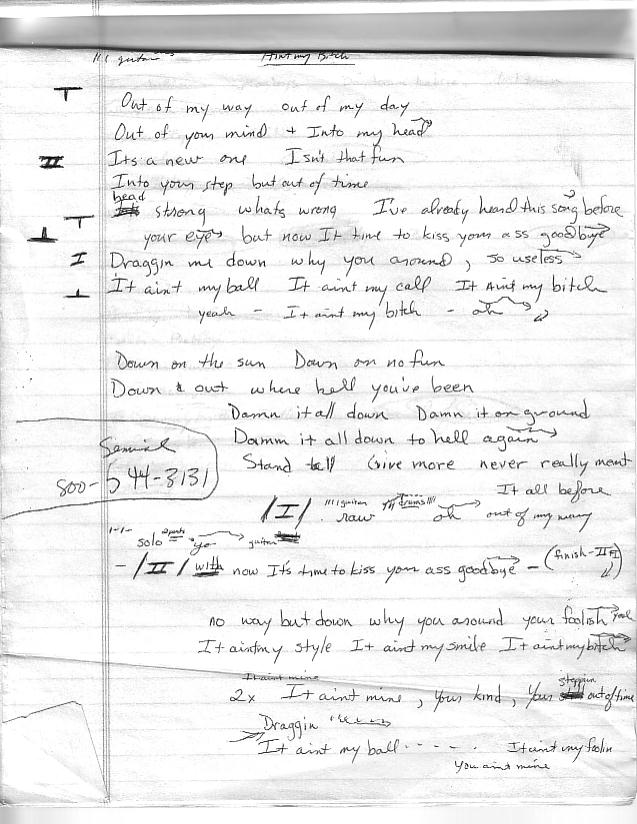 guitar Aint my Bitch
Out of my way out of my day
Out of your mind + Into my head
II Its a new one Isn't that fun
Into your step but out of time
head
strong whats wrong I've already heard this song before
your eyes but now It time to kiss your ass goodbye
I Draggin me down why you around, so useless
It ain't my ball It aint my call It Aint my bitch
yeah - It aint my bitch - oh
Down on the sun Down on no fun
Down & out where hell you've been
Damn it all down Damn it on ground
Damn it all down to hell again
Stand tall Give more never really meant
It all before
800-544-3131
/I/ guitar raw drums oh out of my way
solo yo guitar
- /II/ with now It's time to kiss your ass goodbye - (finish - II + I)
no way but down why you around your foolish
It aint my style It aint my smile It aint my bitch
It aint mine
2x It aint mine, your kind, your steppin out of time
Draggin " " "
It aint my ball ----- It aint my foolin
You aint mine